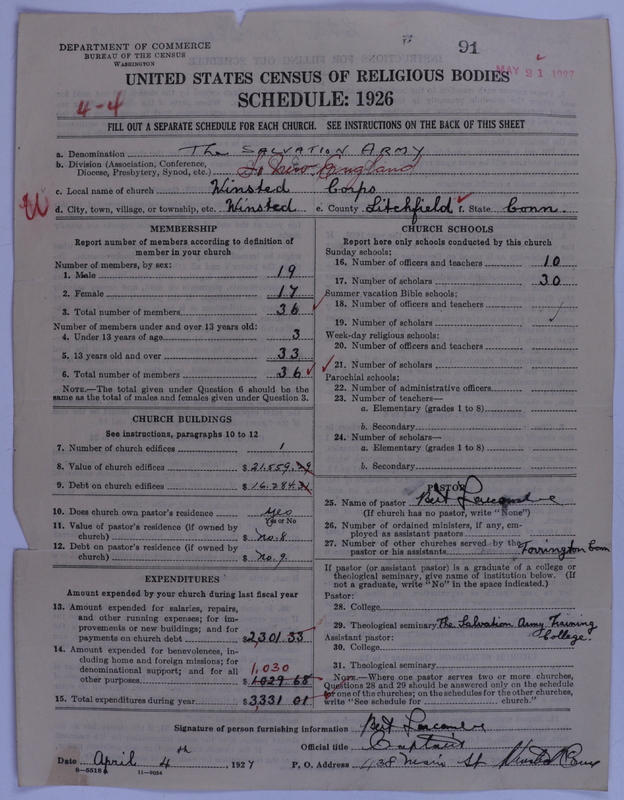 91
DEPARTMENT OF COMMERCE
BUREAU OF THE CENSUS
WASHINGTON
MAY 21 1927
UNITED STATES CENSUS OF RELIGIOUS BODIES
SCHEDULE: 1926
4-4
FILL OUT A SEPARATE SCHEDULE FOR EACH CHURCH. SEE INSTRUCTIONS ON THE BACK OF THIS SHEET
a. Denomination The SALVATION ARMY
b. Division (Association, Conference, Diocese, Presbytery, Synod, etc.) So New England
c. Local name of church Winsted Corps
d. City, town, village, or township, etc. Winsted e. County Litchfield f. State Conn.
MEMBERSHIP
Report number of members according to definition of
member in your church
Number of members, by sex:
1. Male 19
2. Female 17
3. Total number of members 36
Number of members under and over 13 years old:
4. Under 13 years of age 3
5. 13 years old and over 33
6. Total number of members 36
NOTE.—The total given under Question 6 should be the
same as the total of males and females given under Question 3.
CHURCH BUILDINGS
See instructions, paragraphs 10 to 12
7. Number of church edifices 1
8. Value of church edifices $ 21.559.29
9. Debt on church edifices $ 16.284.21
10. Does church own pastor's residence yes
Yes or No
11. Value of pastor's residence (if owned by
church) $ no. 8
12. Debt on pastor's residence (if owned by
church) $ no. 9.
EXPENDITURES
Amount expended by your church during last fiscal year
13. Amount expended for salaries, repairs,
and other running expenses; for im-
provements or new buildings; and for
payments on church debt $2,301.33
14. Amount expended for benevolences, in-
cluding home and foreign missions; for
denominational support; and for all
1,030
other purposes $ 1029 68
15. Total expenditures during year $3,331 01
CHURCH SCHOOLS
Report here only schools conducted by this church
Sunday schools:
16. Number of officers and teachers 10
17. Number of scholars 30
Summer vacation Bible schools:
18. Number of officers and teachers
19. Number of scholars
Week-day religious schools:
20. Number of officers and teachers
21. Number of scholars
Parochial schools:
22. Number of administrative officers
23. Number of teachers—
a. Elementary (grades 1 to 8)
b. Secondary
24. Number of scholars—
a. Elementary (grades 1 to 8)
b. Secondary
PASTOR
25. Name of pastor Bert
(If church has no pastor, write "None")
26. Number of ordained ministers, if any, em-
ployed as assistant pastors
27. Number of other churches served by the
pastor or his assistants Torrington Conn
If pastor (or assistant pastor) is a graduate of a college or
theological seminary, give name of institution below. (If
not a graduate, write "No" in the space indicated.)
Pastor:
28. College
29. Theological seminary The Salvation Army Training
College.
Assistant pastor:
30. College
31. Theological seminary
NOTE.—Where one pastor serves two or more churches,
Questions 28 and 29 should be answered only on the schedule
for one of the churches; on the schedules for the other churches,
write "See schedule for church."
Signature of person furnishing information Bert
Official title Captain
Date April 4th, 1927 P. O. Address 438 Main St Winsted Conn
8-5518 11-9054